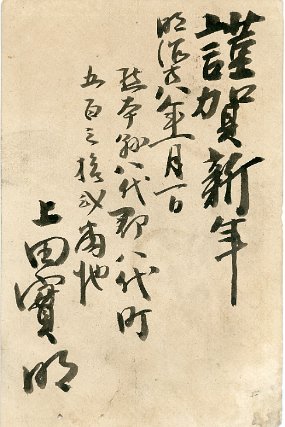 謹賀新年
明治廿八年一月一日
熊本縣八代郡八代町
五百三拾弐番地
上田實明